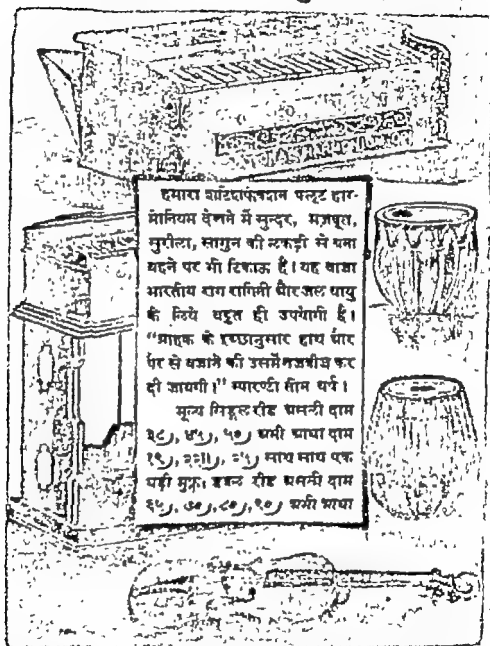 हमारा शटिफिकेटान फ्लूट हार-
मोनियम देखने में सुन्दर, मजबूत,
सुरीला, सागुन की लकड़ी से बना
रहने पर भी टिकाऊ है। यह बाजा
भारतीय राग रागिनी और जल वायु
के लिये बहुत ही उपयोगी है।
"ग्राहक के इच्छानुसार हाथ और
पैर से बजाने की उसमें तजवीज कर
दी जायगी।" ग्यारण्टी तीन वर्ष।
मूल्य सिङ्गल रीड असली दाम
३८), ४५), ५०) अभी आधा दाम
१९), २२॥), २५) साथ साथ एक
घड़ी मुफ़्त। डबल रीड असली दाम
६५), ७०), ८०), ९०) अभी आधा